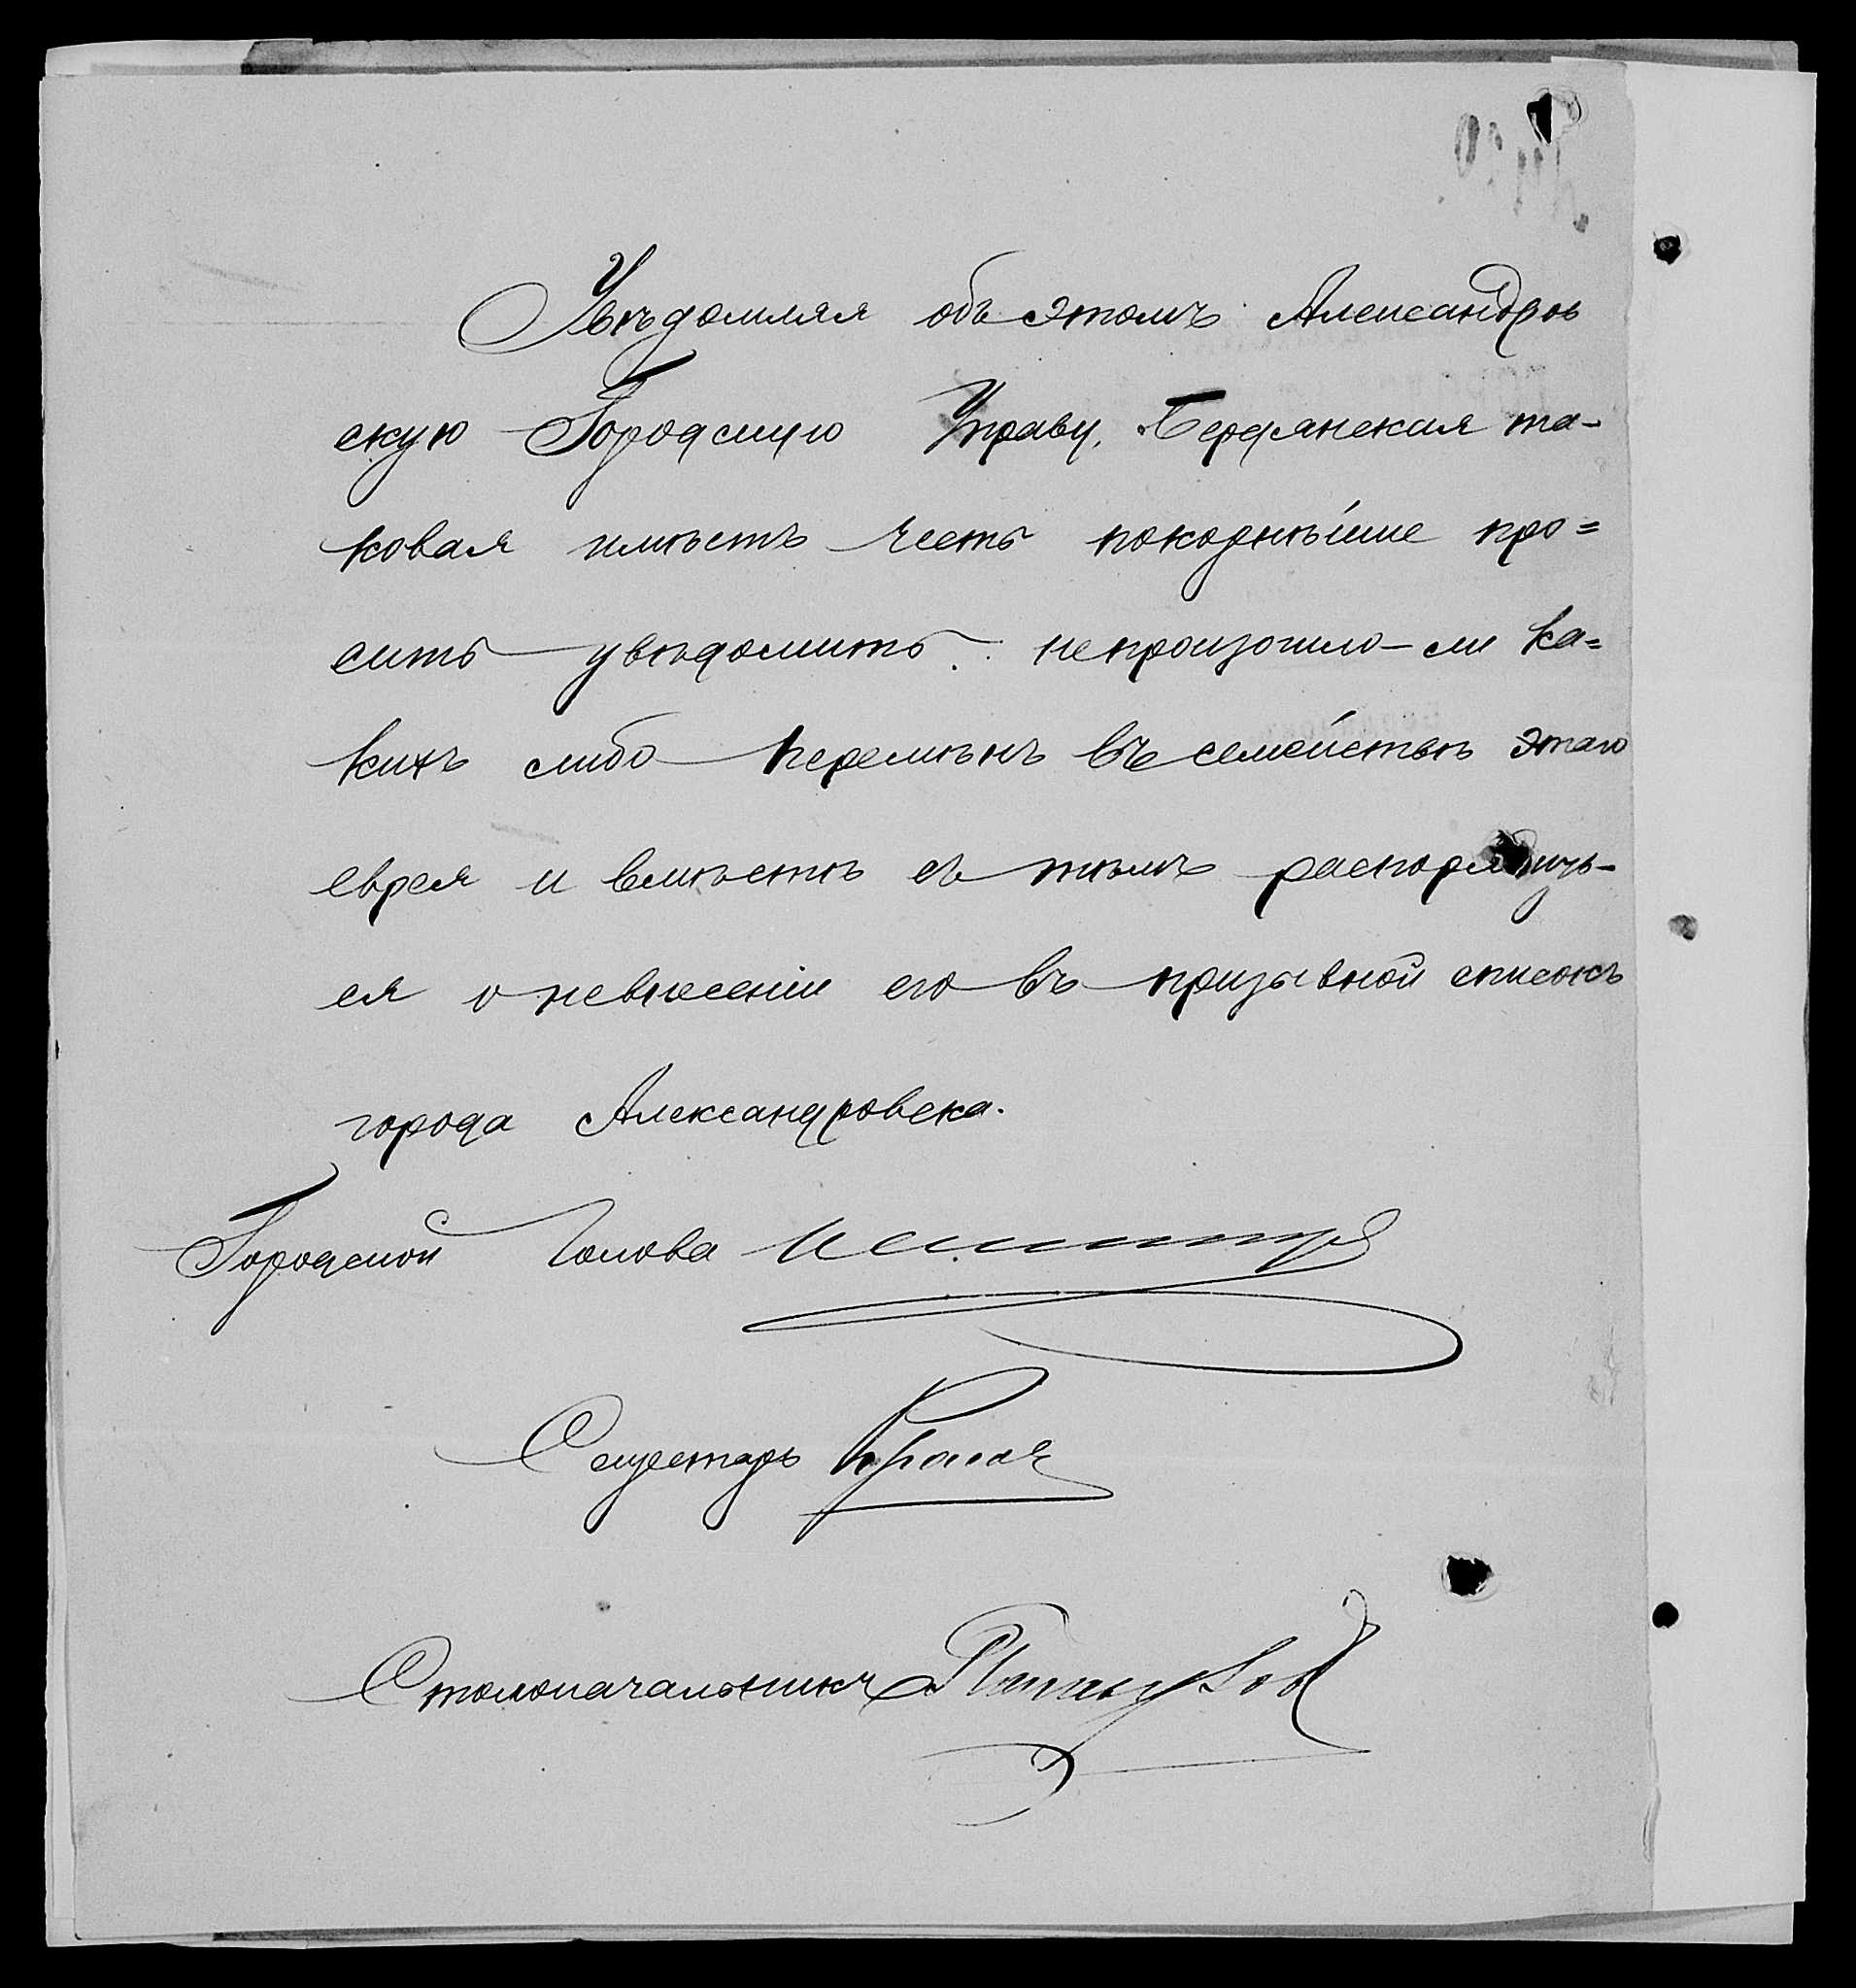 Увѣдомляя объ этомъ Александров
скую Городскую Управу, Бердянская та-
ковая имѣетъ честь покорнѣйше про=
сить увѣдомить: непроизошло-ли ка=
кихъ либо перемѣнъ въ семействѣ этаго
еврея и вмѣстѣ съ тѣмъ распорядить-
ся о невнесеніи его въ призывной списокъ
города Александровска.
Городской Голова
Секретарь
Столоначальникъ